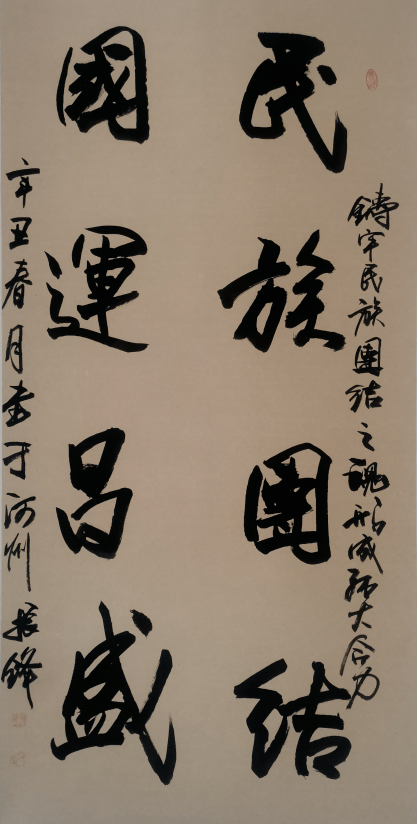 鑄牢民族團結之魂形成强大合力
民族團結
國運昌盛
辛丑春月書于河州振鋒